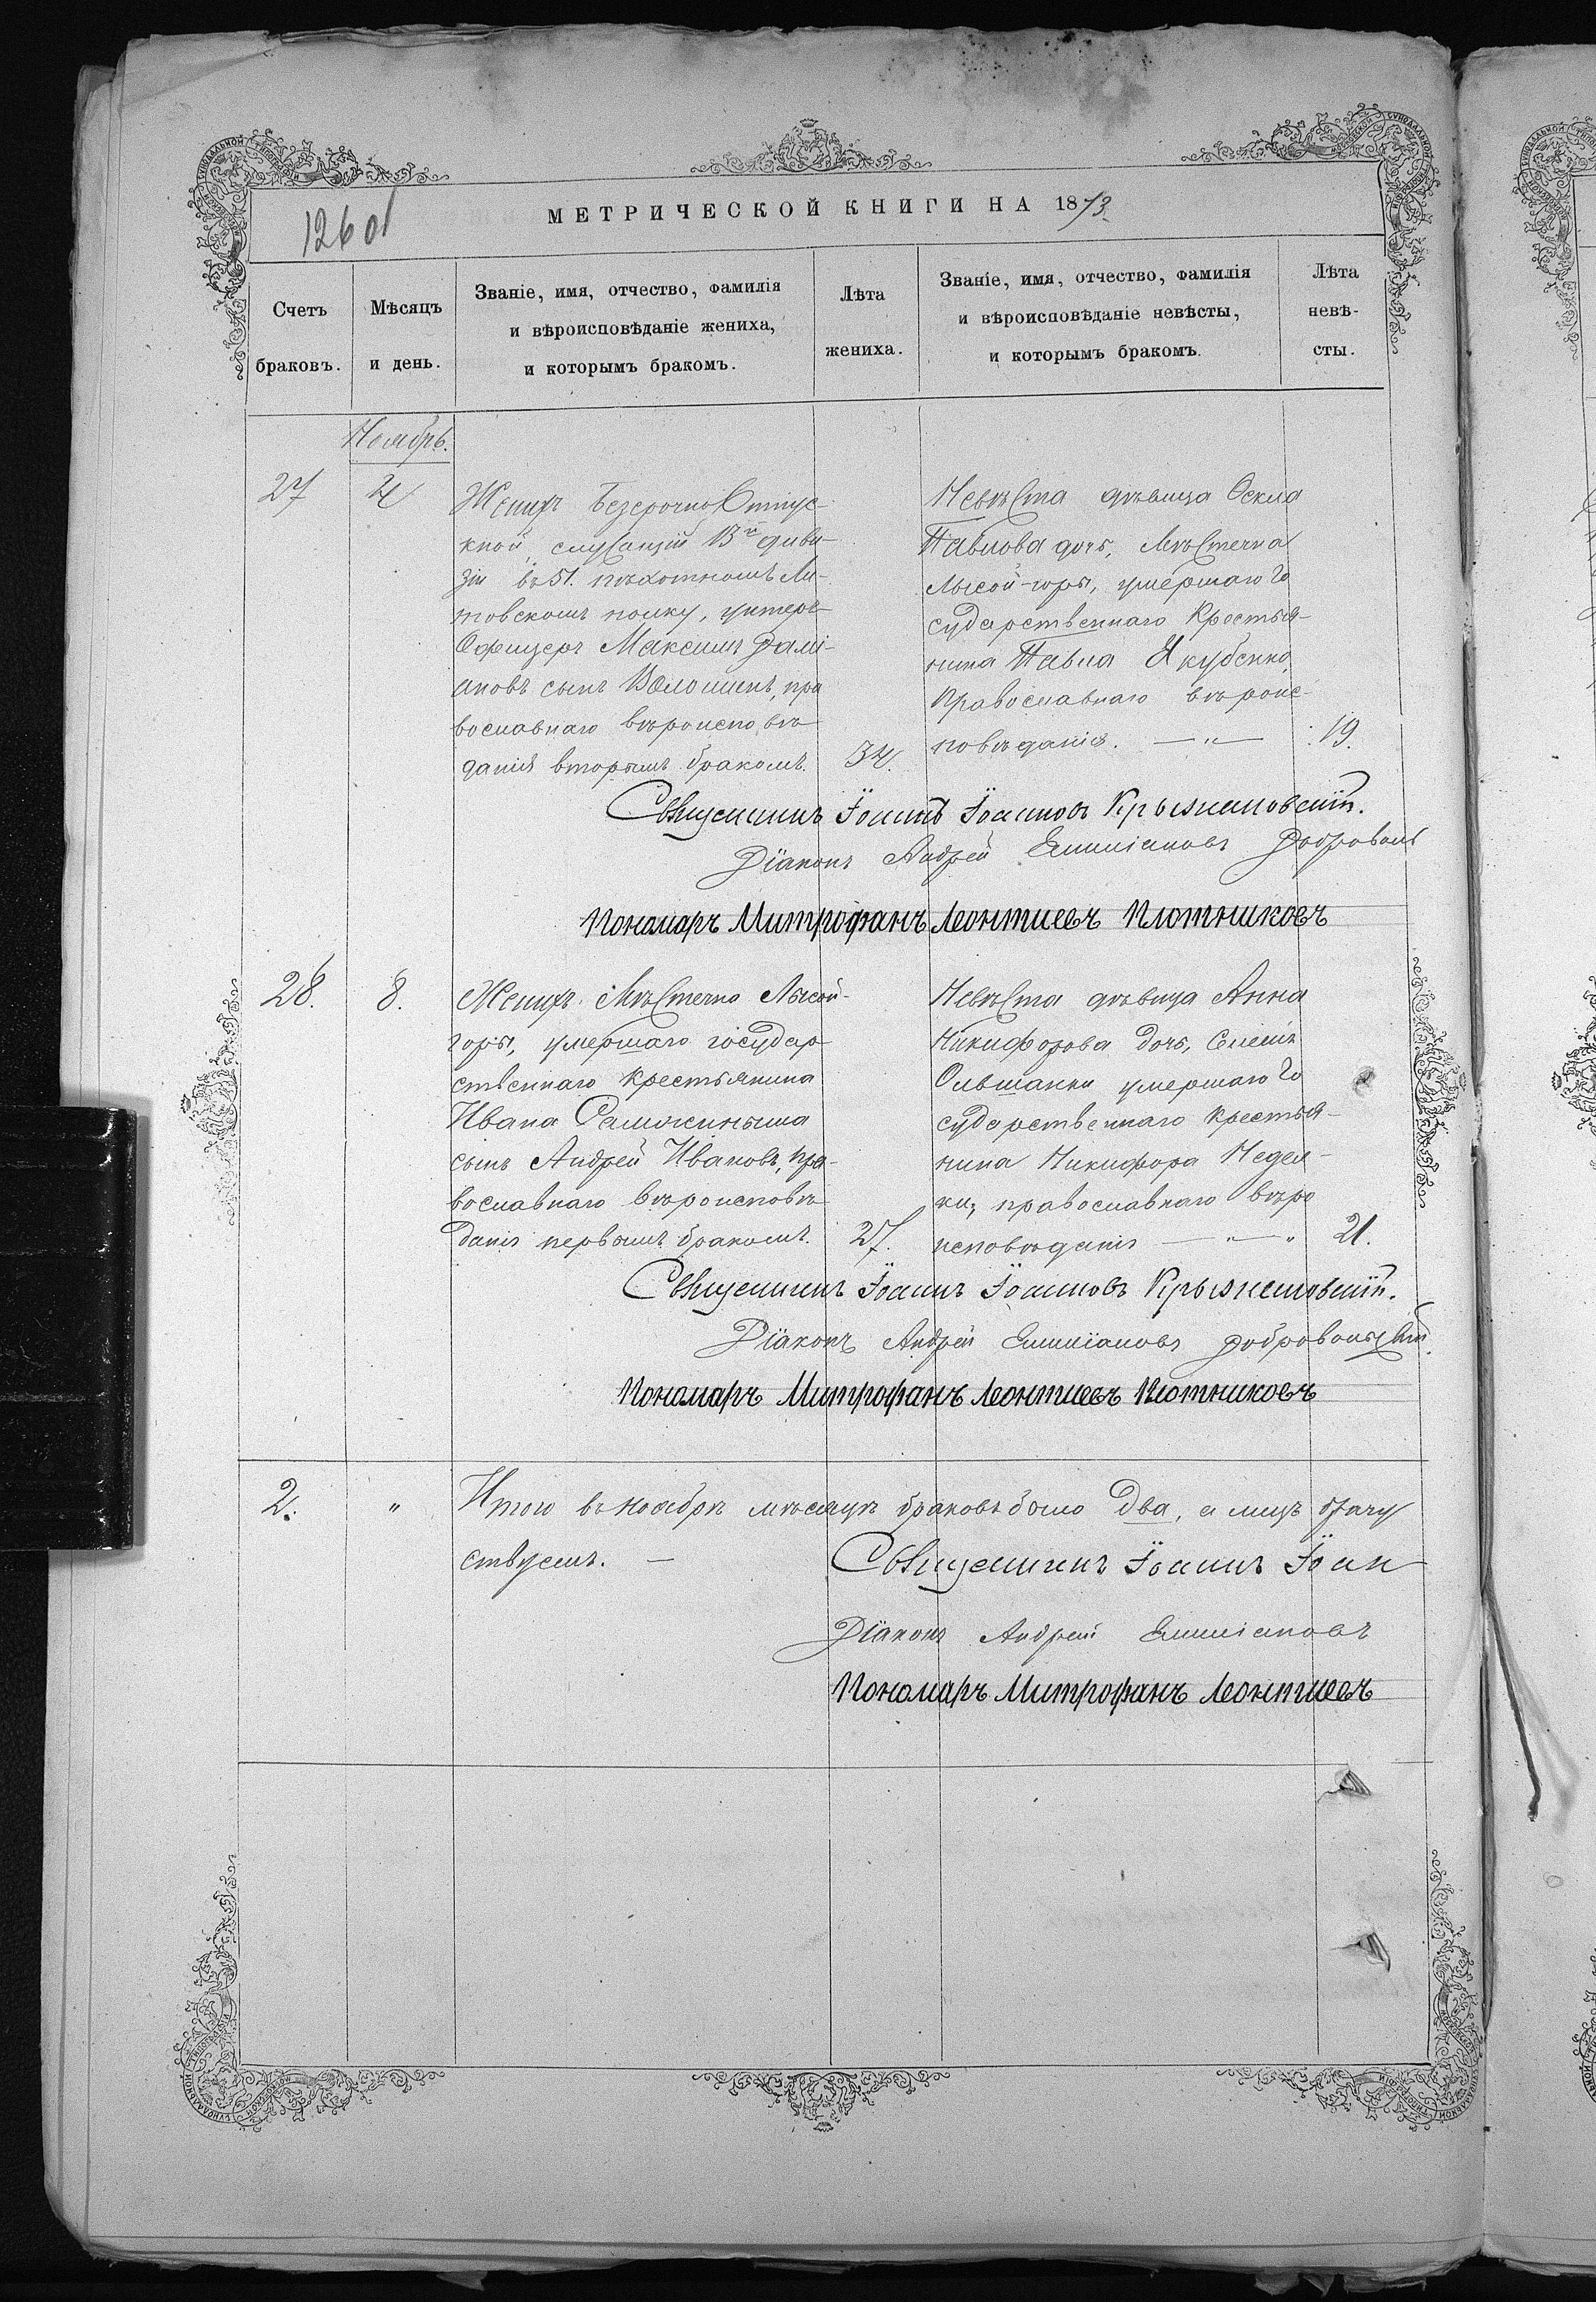 1260
МЕТРИЧЕСКОЙ КНИГИ НА 1873.
Счетъ браковъ.
Мѣсяцъ и день.
Званіе, имя, отчество, фамилія
и вѣроисповѣданіе жениха,
и которымъ бракомъ.
Лѣта жениха.
Званіе, имя, отчество, фамилія
и вѣроисповѣданіе невѣсты,
и которымъ бракомъ.
Лѣта невѣ-
сты.
Ноябрь.
27
4
Женихъ безсрочно Отпус-
кной, служащій 13й диви-
зіи въ 51. пѣхотномъ Ли-
товскомъ полку, унтеръ
Офицеръ Максимъ Дамі-
ановъ сынъ Волошинъ, пра
вославнаго вѣроисповѣ-
данія вторымъ бракомъ.
34.
Невѣста дѣвица
Павлова дочь, мѣстечка
Лысой-горы, умершаго Го
сударственнаго Крестья-
нина Павла Якубенко,
Православнаго вѣроис-
повѣданія. — „ —
19.
Священникъ Іоаннъ Іоанновъ Крыжановскій.
Діаконъ Андрей Емиліановъ Доброволь
Пономарь Митрофанъ Леонтиевъ Плотниковъ
28.
8.
Женихъ мѣстечка Лысой-
горы, умершаго государ-
ственнаго Крестьянина
Ивана
сынъ Андрей Ивановъ, пра-
вославнаго вѣроисповѣ-
данія первымъ бракомъ.
27.
Невѣста дѣвица Анна
Никифорова дочь,
Ольшанки умершаго Го
сударственнаго Крестья-
нина Никифора Недел-
ки, православнаго вѣро
исповѣданія — „ — „
21.
Священникъ Іоаннъ Іоанновъ Крыжановскій.
Діаконъ Андрей Емиліановъ Добровольскій.
Пономарь Митрофанъ Леонтиевъ Плотниковъ
2.
„
Итого въ ноябрѣ мѣсяцѣ браковъ было два, а лицъ
—
Священникъ Іоаннъ Іоан
Діаконъ Андрей Емиліановъ
Пономарь Митрофанъ Леонтиевъ